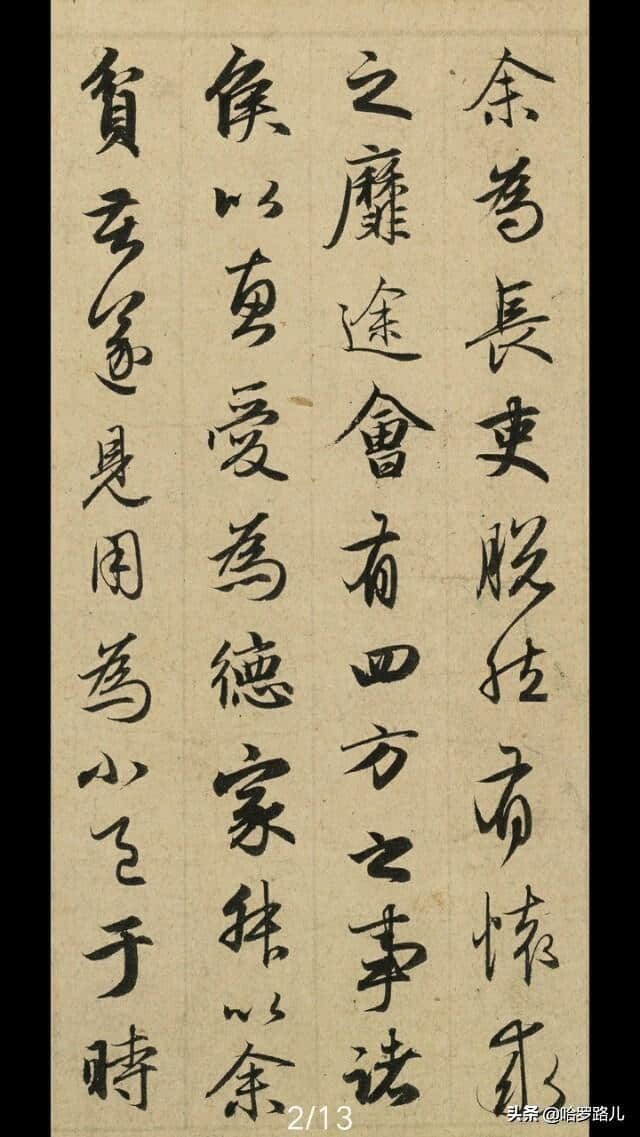 余為長吏脱然有懷求
之靡途會有四方之事諸
侯以惠愛為德家叔以余
貧苦遂見用為小邑于時
2/13
头条 @哈罗路儿